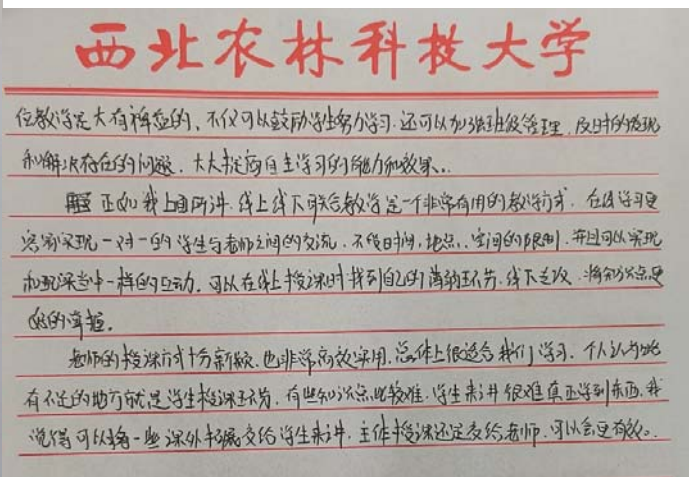 西北农林科技大学
位教学是大有裨益的,不仅可以鼓励学生努力学习.还可以加强班级管理,及时的发现
和解决存在的问题,大大提高自主学习的能力和效果..
正如我上面所讲.线上线下联合教学是一个非常有用的教学方式.在线学习更
容易实现一对一的学生与老师之间的交流,不受时间,地点,空间的限制,并且可以实现
和现实当中一样的互动,可以在线上授课时找到自己的薄弱环节,线下主攻,将知识点更
好的掌握。
老师的授课方式十分新颖,也非常高效实用,总体上很适合我们学习,个人认为比
有不足的地方就是学生授课环节,有些知识点比较难,学生来讲很难真正学到东西,我
觉得可以将一些课外拓展交给学生来讲.主体授课还是交给老师,可以会更有效。